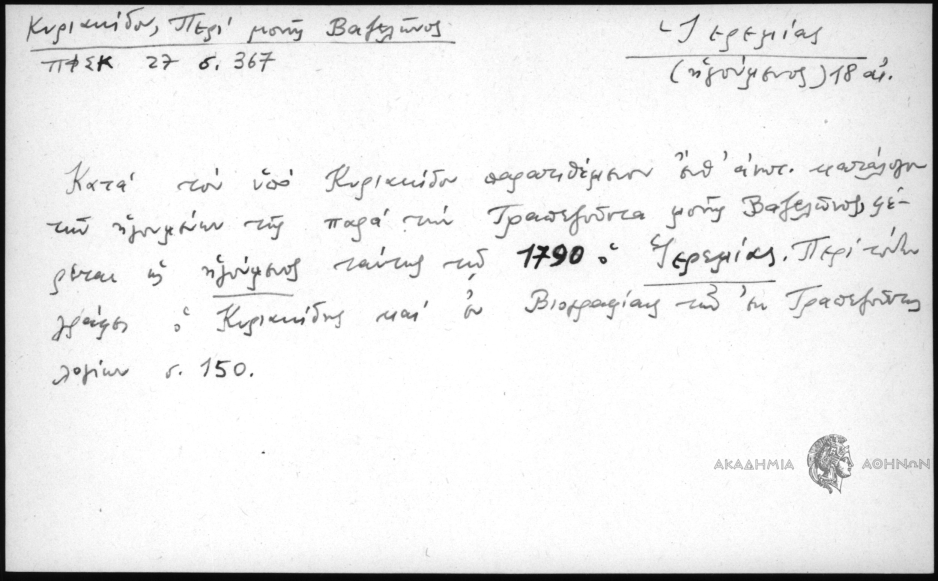 Κυριακίδου, Περί μονῆς Βαζελῶνος
ΠΦΣΚ 27 σ. 367
Ἱερεμίας
(ἡγούμενος) 18 αἰ.
Κατά τόν ὑπό Κυριακίδου παρατιθέμενον ἔνθ' ἀνωτ. κατάλογον
τῶν ἡγουμένων τῆς παρά τήν Τραπεζοῦντα μονῆς Βαζελῶνος, φέ-
ρεται ὡς ἡγούμενος ταύτης τῷ 1790 ὁ Ἱερεμίας. Περί τούτου
γράφει ὁ Κυριακίδης καί ἐν Βιογραφίαις τῶν ἐκ Τραπεζοῦντος
λογίων σ. 150.
ΑΚΑΔΗΜΙΑ ΑΘΗΝΩΝ